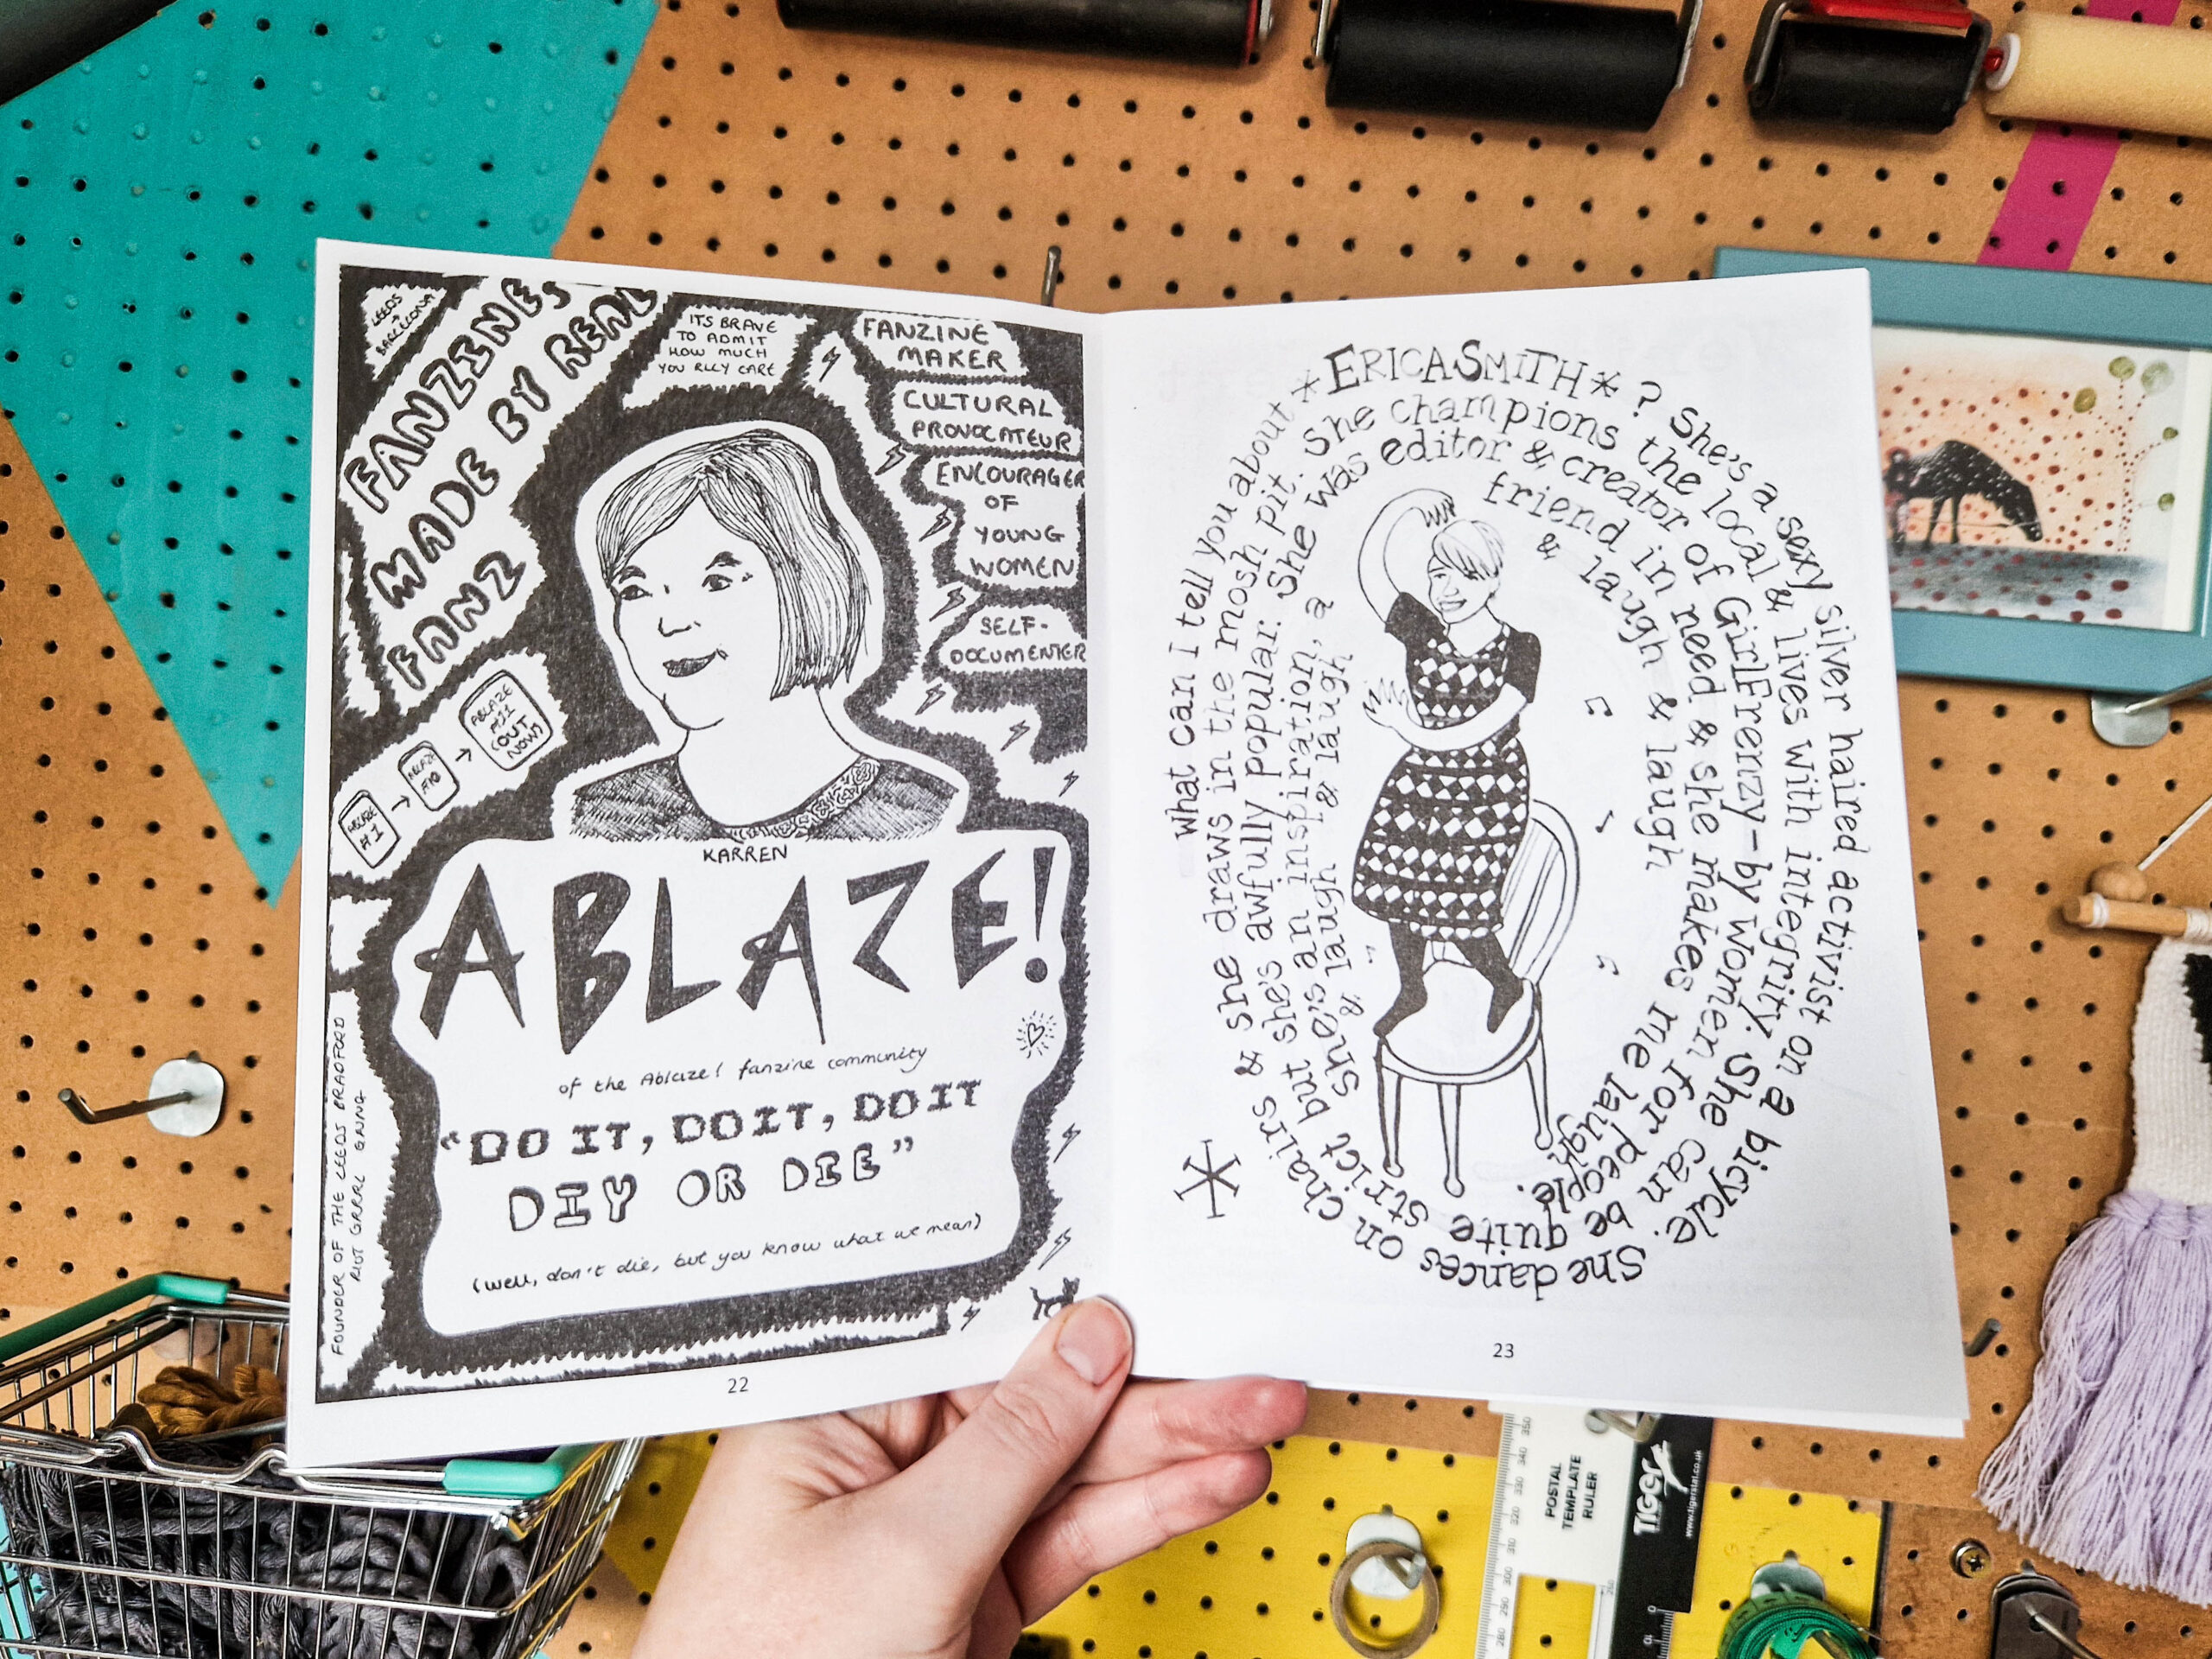 LEEDS
→
BARCELONA
FANZINES
MADE BY REAL
FANZ
ITS BRAVE
TO ADMIT
HOW MUCH
YOU RLLY CARE
FANZINE
MAKER
CULTURAL
PROVOCATEUR
ENCOURAGER
OF
YOUNG
WOMEN
SELF-
DOCUMENTER
ABLAZE
#1
→
ABLAZE
#10
→
ABLAZE
#11
(OUT
NOW)
KARREN
ABLAZE!
of the Ablaze! fanzine community
"DO IT, DO IT, DO IT
DIY OR DIE"
(well, don't die, but you know what we mean)
FOUNDER OF THE LEEDS BRADFORD
RIOT GRRRL GANG
22
what can I tell you about *ERICA SMITH*? She's a sexy silver haired activist on a bicycle. She dances on chairs & she draws in the mosh pit. She champions the local & lives with integrity. She can be quite strict but she's awfully popular. She was editor & creator of GirlFrenzy-by women for people. She's an inspiration, a friend in need & she makes me laugh & laugh & laugh & laugh & laugh & laugh
23
POSTAL
TEMPLATE
RULER
TIGER
www.tigerstat.co.uk
350
340
330
320
310
300
290
280